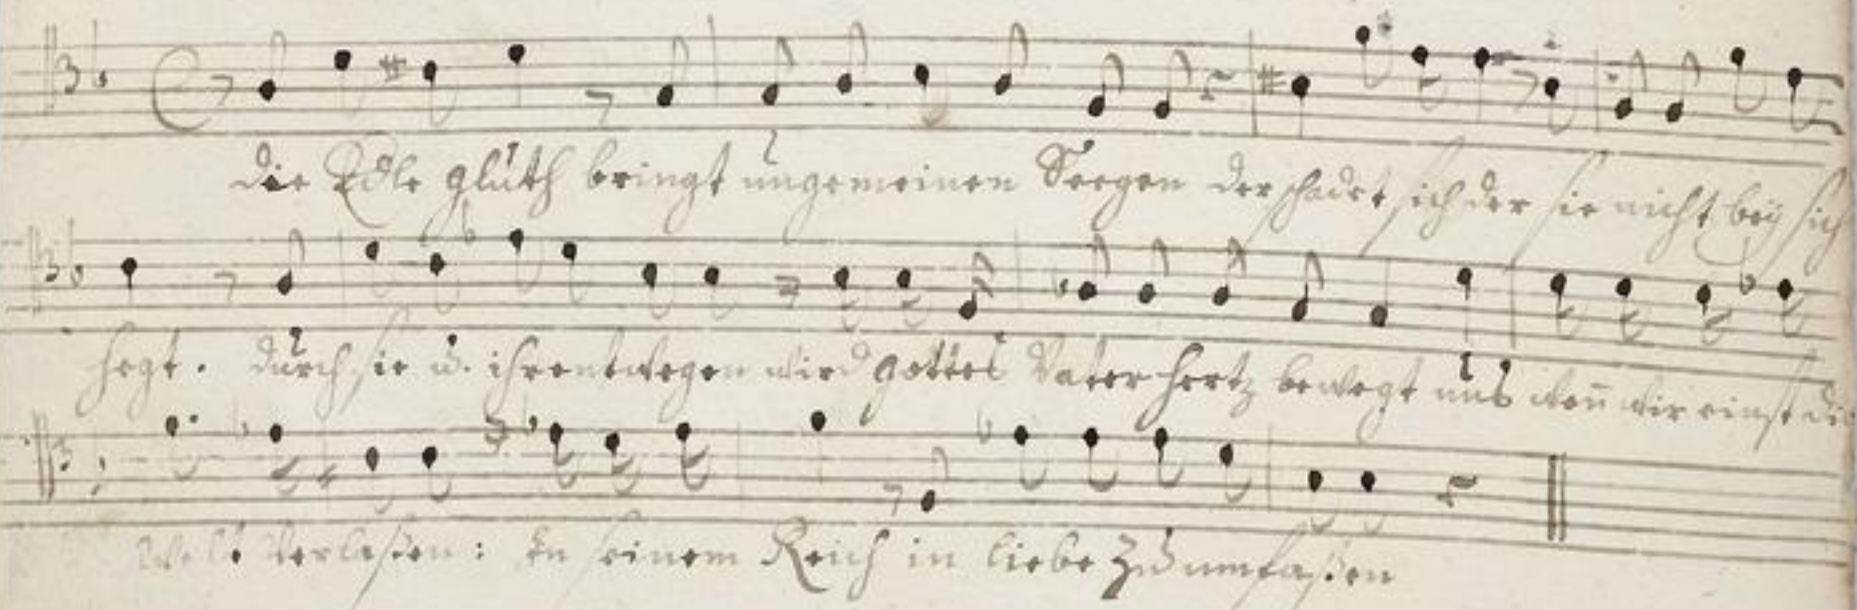 die Edle gluth bringt ungemeinen Seegen der schadet sich der sie nicht beÿ sich
hegt. durch sie u. ihrentwegen wird gottes Vater hertz bewegt uns wen̄ wir einst die
Welt verlaßen: in seinem Reich in liebe zu umfaßen